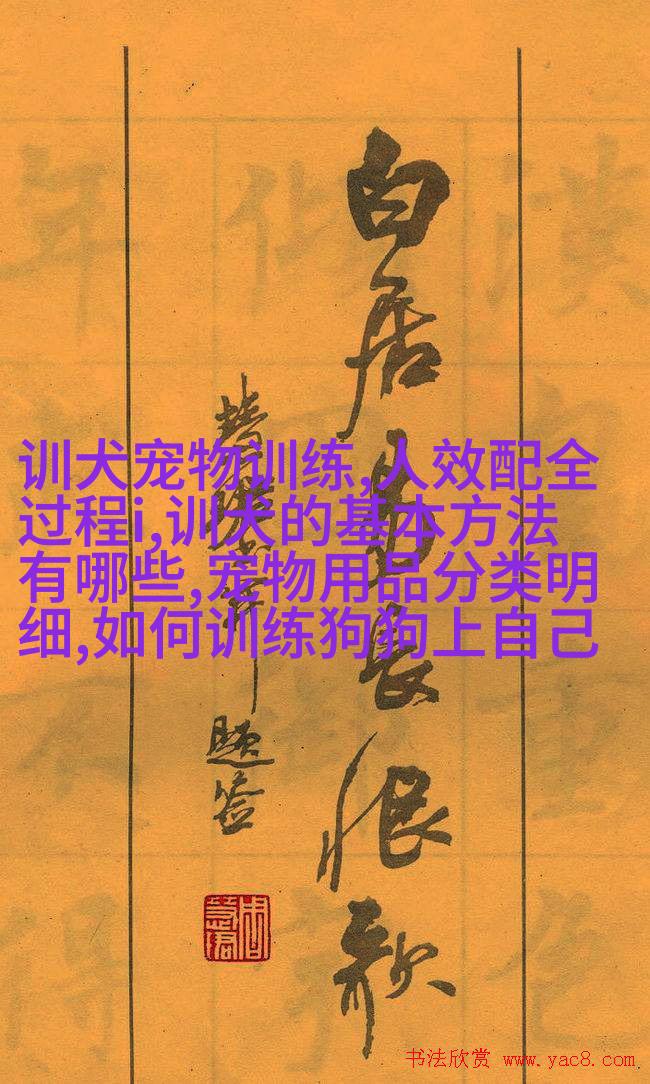 白居易長恨歌
題签
训犬宠物训练,人效配全
过程i,训犬的基本方法
有哪些,宠物用品分类明
细,如何训练狗狗上自己
书法欣赏 www.yac8.com